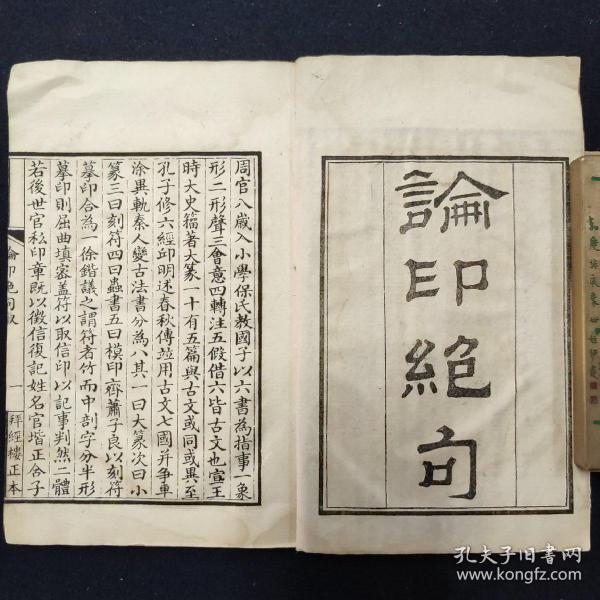 論印絕句
周官八歲入小學保氏教國子以六書為指事一象
形二形聲三會意四轉注五假借六皆古文也宣王
時大史籀著大篆一十有五篇與古文或同或異至
孔子修六經邱明述春秋傳竝用古文七國并争車
涂異軌秦人變古法書分為八其一曰大篆次曰小
篆三曰刻符四曰蟲書五曰模印齊蕭子良以刻符
摹印合為一徐鍇議之謂符者竹而中剖字分半形
摹印則屈曲填密盖符以取信印以記事判然二體
若後世官私印章既以徵信復記姓名官堦正合子
論印絕句叙
一
拜經樓正本
孔夫子旧书网
www.kongfz.com